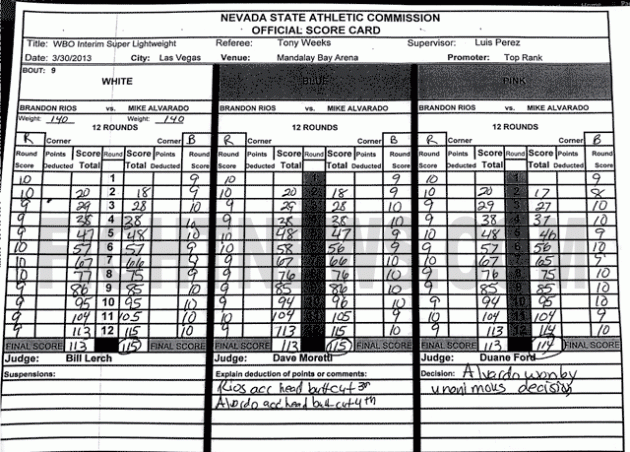 NEVADA STATE ATHLETIC COMMISSION
OFFICIAL SCORE CARD
Title: WBO Interim Super Lightweight Referee: Tony Weeks Supervisor: Luis Perez
Date: 3/30/2013 City: Las Vegas Venue: Mandalay Bay Arena Promoter: Top Rank
BOUT: 9
WHITE BLUE PINK
BRANDON RIOS vs. MIKE ALVARADO BRANDON RIOS vs. MIKE ALVARADO BRANDON RIOS vs. MIKE ALVARADO
Weight: 140 Weight: 140
12 ROUNDS 12 ROUNDS 12 ROUNDS
R Corner Corner B R Corner Corner B R Corner Corner B
Round Points Score Round Score Points Round Round Points Score Round Score Points Round Round Points Score Round Score Points Round
Score Deducted Total Total Deducted Score Score Deducted Total Total Deducted Score Score Deducted Total Total Deducted Score
10 1 9 10 9 10 1 9
10 20 2 18 9 10 20 2 18 9 10 20 2 17
9 29 3 28 10 9 29 28 10 9 29 27 10
9 38 4 28 10 9 38 38 10 9 38 37 10
9 47 5 48 10 10 48 47 9 48 46
10 57 6 57 9 10 58 56 9 57 56 10
10 67 7 66 9 67 66 10 67 65
10 77 8 75 9 9 76 76 10 9 76 75 10
9 86 9 85 10 9 85 86 10 9 85 85 10
9 95 10 95 10 9 94 96 10 95 94
9 104 11 105 10 10 104 105 9 104 104 10
9 113 12 115 10 9 113 115 10 9 113 114 10
FINAL SCORE 113 115 FINAL SCORE FINAL SCORE 113 115 FINAL SCORE FINAL SCORE 113 114 FINAL SCORE
Judge: Bill Lerch Judge: Dave Moretti Judge: Duane Ford
Suspensions: Explain deduction of points or comments: Decision: Alvardo won by
Rios acc head butt cut 3r unanimous decision
Alvardo acc head butt cut 4th